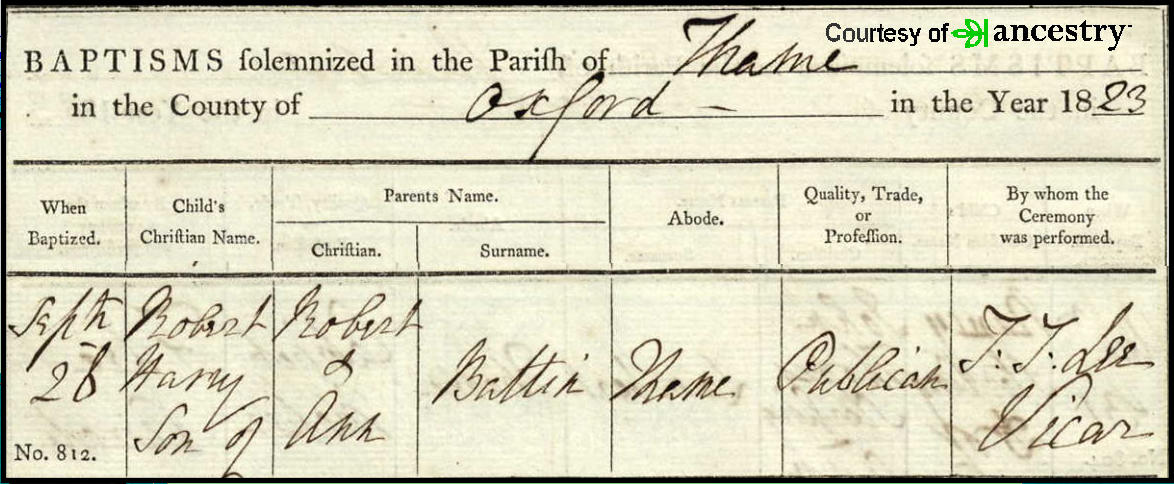 Courtesy of ancestry
BAPTISMS solemnized in the Parish of Thame
in the County of Oxford in the Year 1823
When Baptized.
Child's Christian Name.
Parents Name.
Christian.
Surname.
Abode.
Quality, Trade, or Profession.
By whom the Ceremony was performed.
Septr Robert Robert
28 Harry & Battin Thame Publican T: T: Lee
Son of Ann Vicar
No. 812.